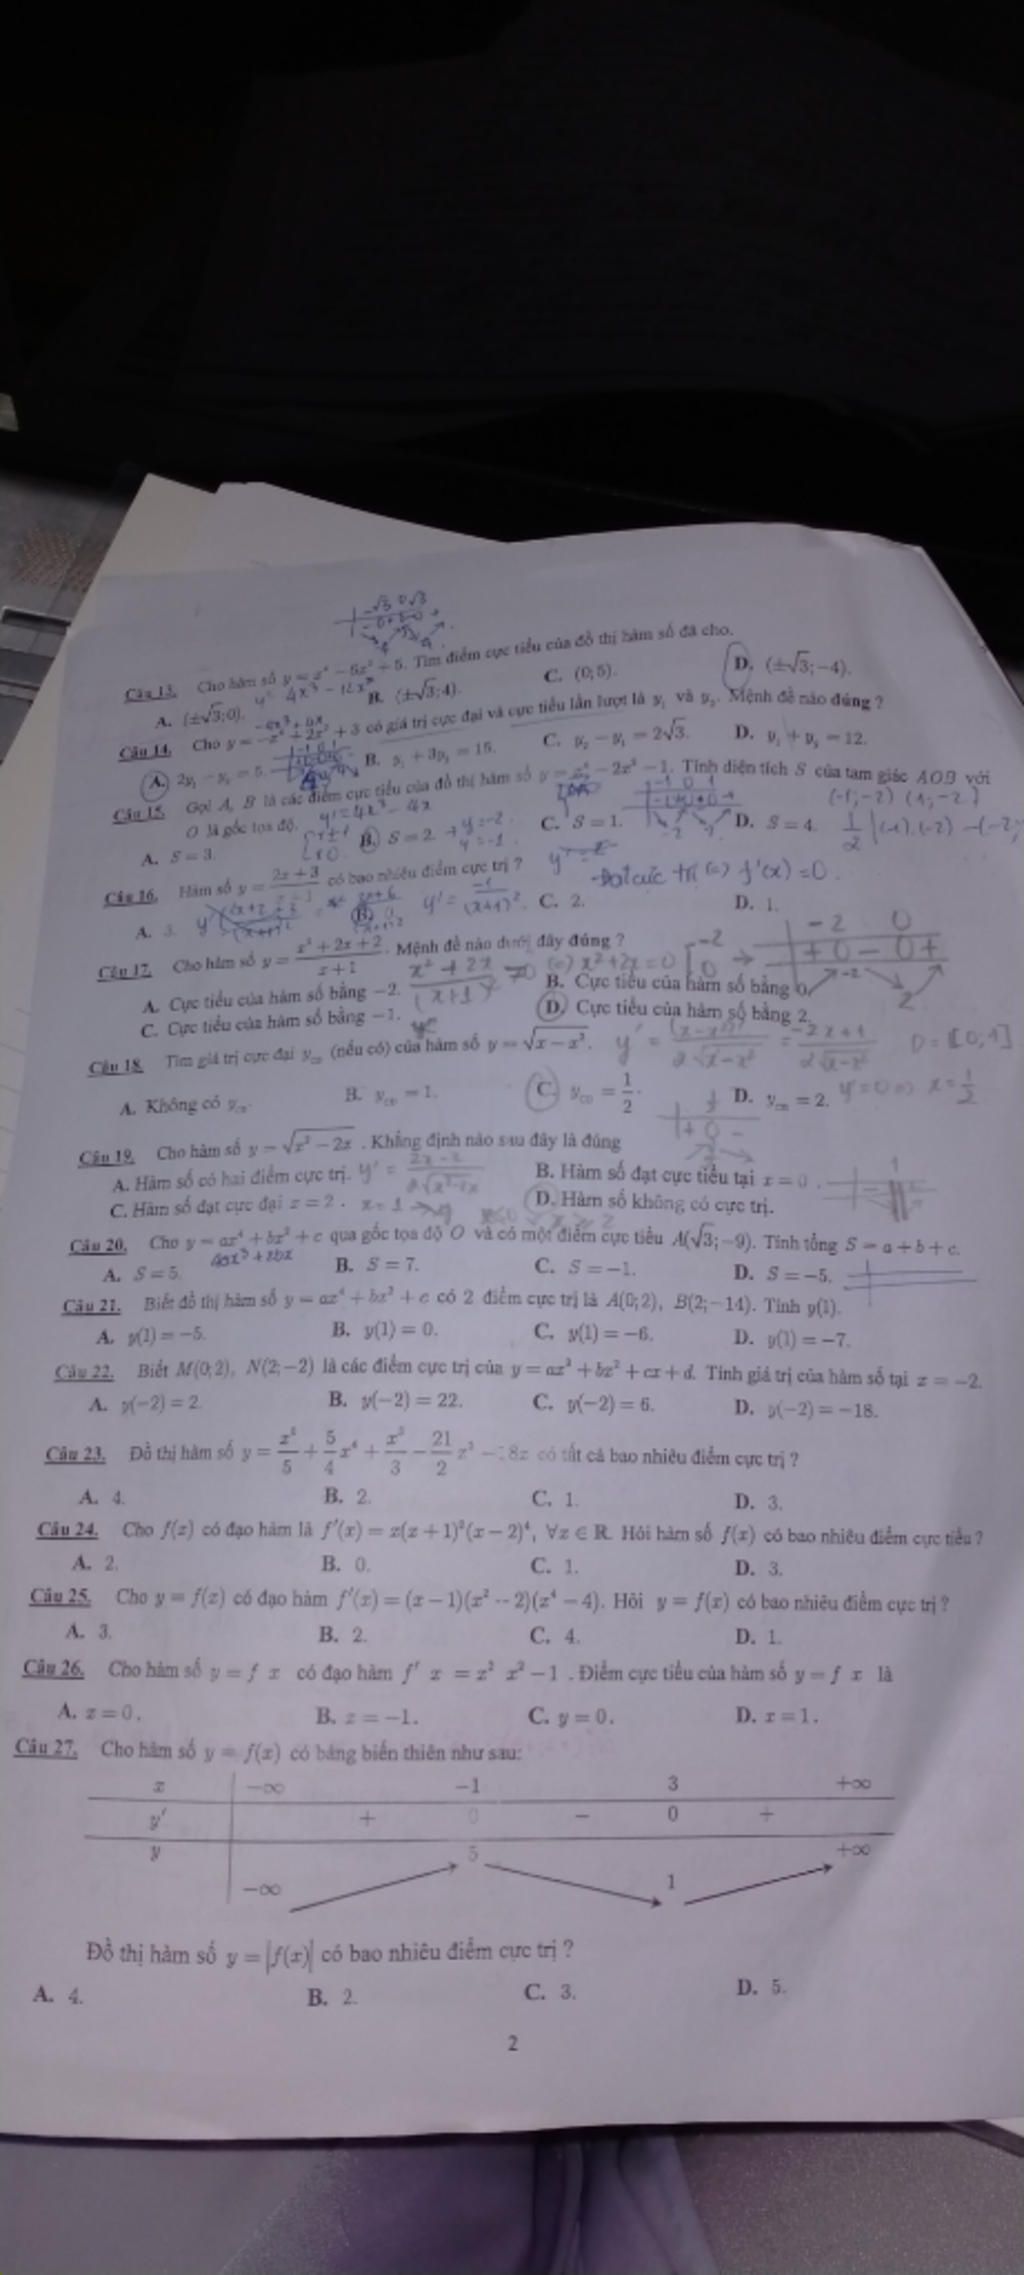 Câu 13. Cho hàm số y = x⁴ − 6x² + 5. Tìm điểm cực tiểu của đồ thị hàm số đã cho.
A. (±√3;0). B. (±√3;4). C. (0;5). D. (±√3;−4).
Câu 14. Cho y = −x⁴ + 2x² + 3 có giá trị cực đại và cực tiểu lần lượt là y₁ và y₂. Mệnh đề nào đúng ?
A. 2y₁ − y₂ = 5. B. y₁ + 3y₂ = 15. C. y₂ − y₁ = 2√3. D. y₁ + y₂ = 12.
Câu 15. Gọi A, B là các điểm cực tiểu của đồ thị hàm số y = x⁴ − 2x² − 1. Tính diện tích S của tam giác AOB với
O là gốc tọa độ. y' = 4x³ − 4x (-1;-2) (1;-2)
A. S = 3. B. S = 2. C. S = 1. D. S = 4.
Câu 16. Hàm số y = (2x + 3)/(x + 1) có bao nhiêu điểm cực trị ? Đạt cực trị (=) f'(x) = 0
A. 3. B. 0. y' = -1/(x+1)². C. 2. D. 1.
Câu 17. Cho hàm số y = (x² + 2x + 2)/(x + 1). Mệnh đề nào dưới đây đúng ?
A. Cực tiểu của hàm số bằng −2. B. Cực tiểu của hàm số bằng 0.
C. Cực tiểu của hàm số bằng −1. D. Cực tiểu của hàm số bằng 2.
Câu 18. Tìm giá trị cực đại y_CĐ (nếu có) của hàm số y = √(x − x²). D = [0;1]
A. Không có y_CĐ. B. y_CĐ = 1. C. y_CĐ = 1/2. D. y_CĐ = 2. y' = 0 (=) x = 1/2
Câu 19. Cho hàm số y = √(x² − 2x) . Khẳng định nào sau đây là đúng
A. Hàm số có hai điểm cực trị. B. Hàm số đạt cực tiểu tại x = 0 .
C. Hàm số đạt cực đại x = 2 . D. Hàm số không có cực trị.
Câu 20. Cho y = ax⁴ + bx² + c qua gốc tọa độ O và có một điểm cực tiểu A(√3;−9). Tính tổng S = a + b + c.
4ax³ + 2bx
A. S = 5. B. S = 7. C. S = −1. D. S = −5.
Câu 21. Biết đồ thị hàm số y = ax⁴ + bx² + c có 2 điểm cực trị là A(0;2), B(2;−14). Tính y(1).
A. y(1) = −5. B. y(1) = 0. C. y(1) = −6. D. y(1) = −7.
Câu 22. Biết M(0;2), N(2;−2) là các điểm cực trị của y = ax³ + bx² + cx + d. Tính giá trị của hàm số tại x = −2.
A. y(−2) = 2. B. y(−2) = 22. C. y(−2) = 6. D. y(−2) = −18.
Câu 23. Đồ thị hàm số y = x⁵/5 + 5/4 x⁴ + x³/3 − 21/2 x² − 18x có tất cả bao nhiêu điểm cực trị ?
A. 4. B. 2. C. 1. D. 3.
Câu 24. Cho f(x) có đạo hàm là f′(x) = x(x + 1)²(x − 2)⁴, ∀x ∈ ℝ. Hỏi hàm số f(x) có bao nhiêu điểm cực tiểu ?
A. 2. B. 0. C. 1. D. 3.
Câu 25. Cho y = f(x) có đạo hàm f′(x) = (x − 1)(x² − 2)(x⁴ − 4). Hỏi y = f(x) có bao nhiêu điểm cực trị ?
A. 3. B. 2. C. 4. D. 1.
Câu 26. Cho hàm số y = f x có đạo hàm f′ x = x² x² − 1 . Điểm cực tiểu của hàm số y = f x là
A. x = 0 . B. x = −1 . C. y = 0 . D. x = 1 .
Câu 27. Cho hàm số y = f(x) có bảng biến thiên như sau:
x −∞ −1 3 +∞
y′ + 0 − 0 +
y 5 +∞
−∞ 1
Đồ thị hàm số y = |f(x)| có bao nhiêu điểm cực trị ?
A. 4. B. 2. C. 3. D. 5.
2